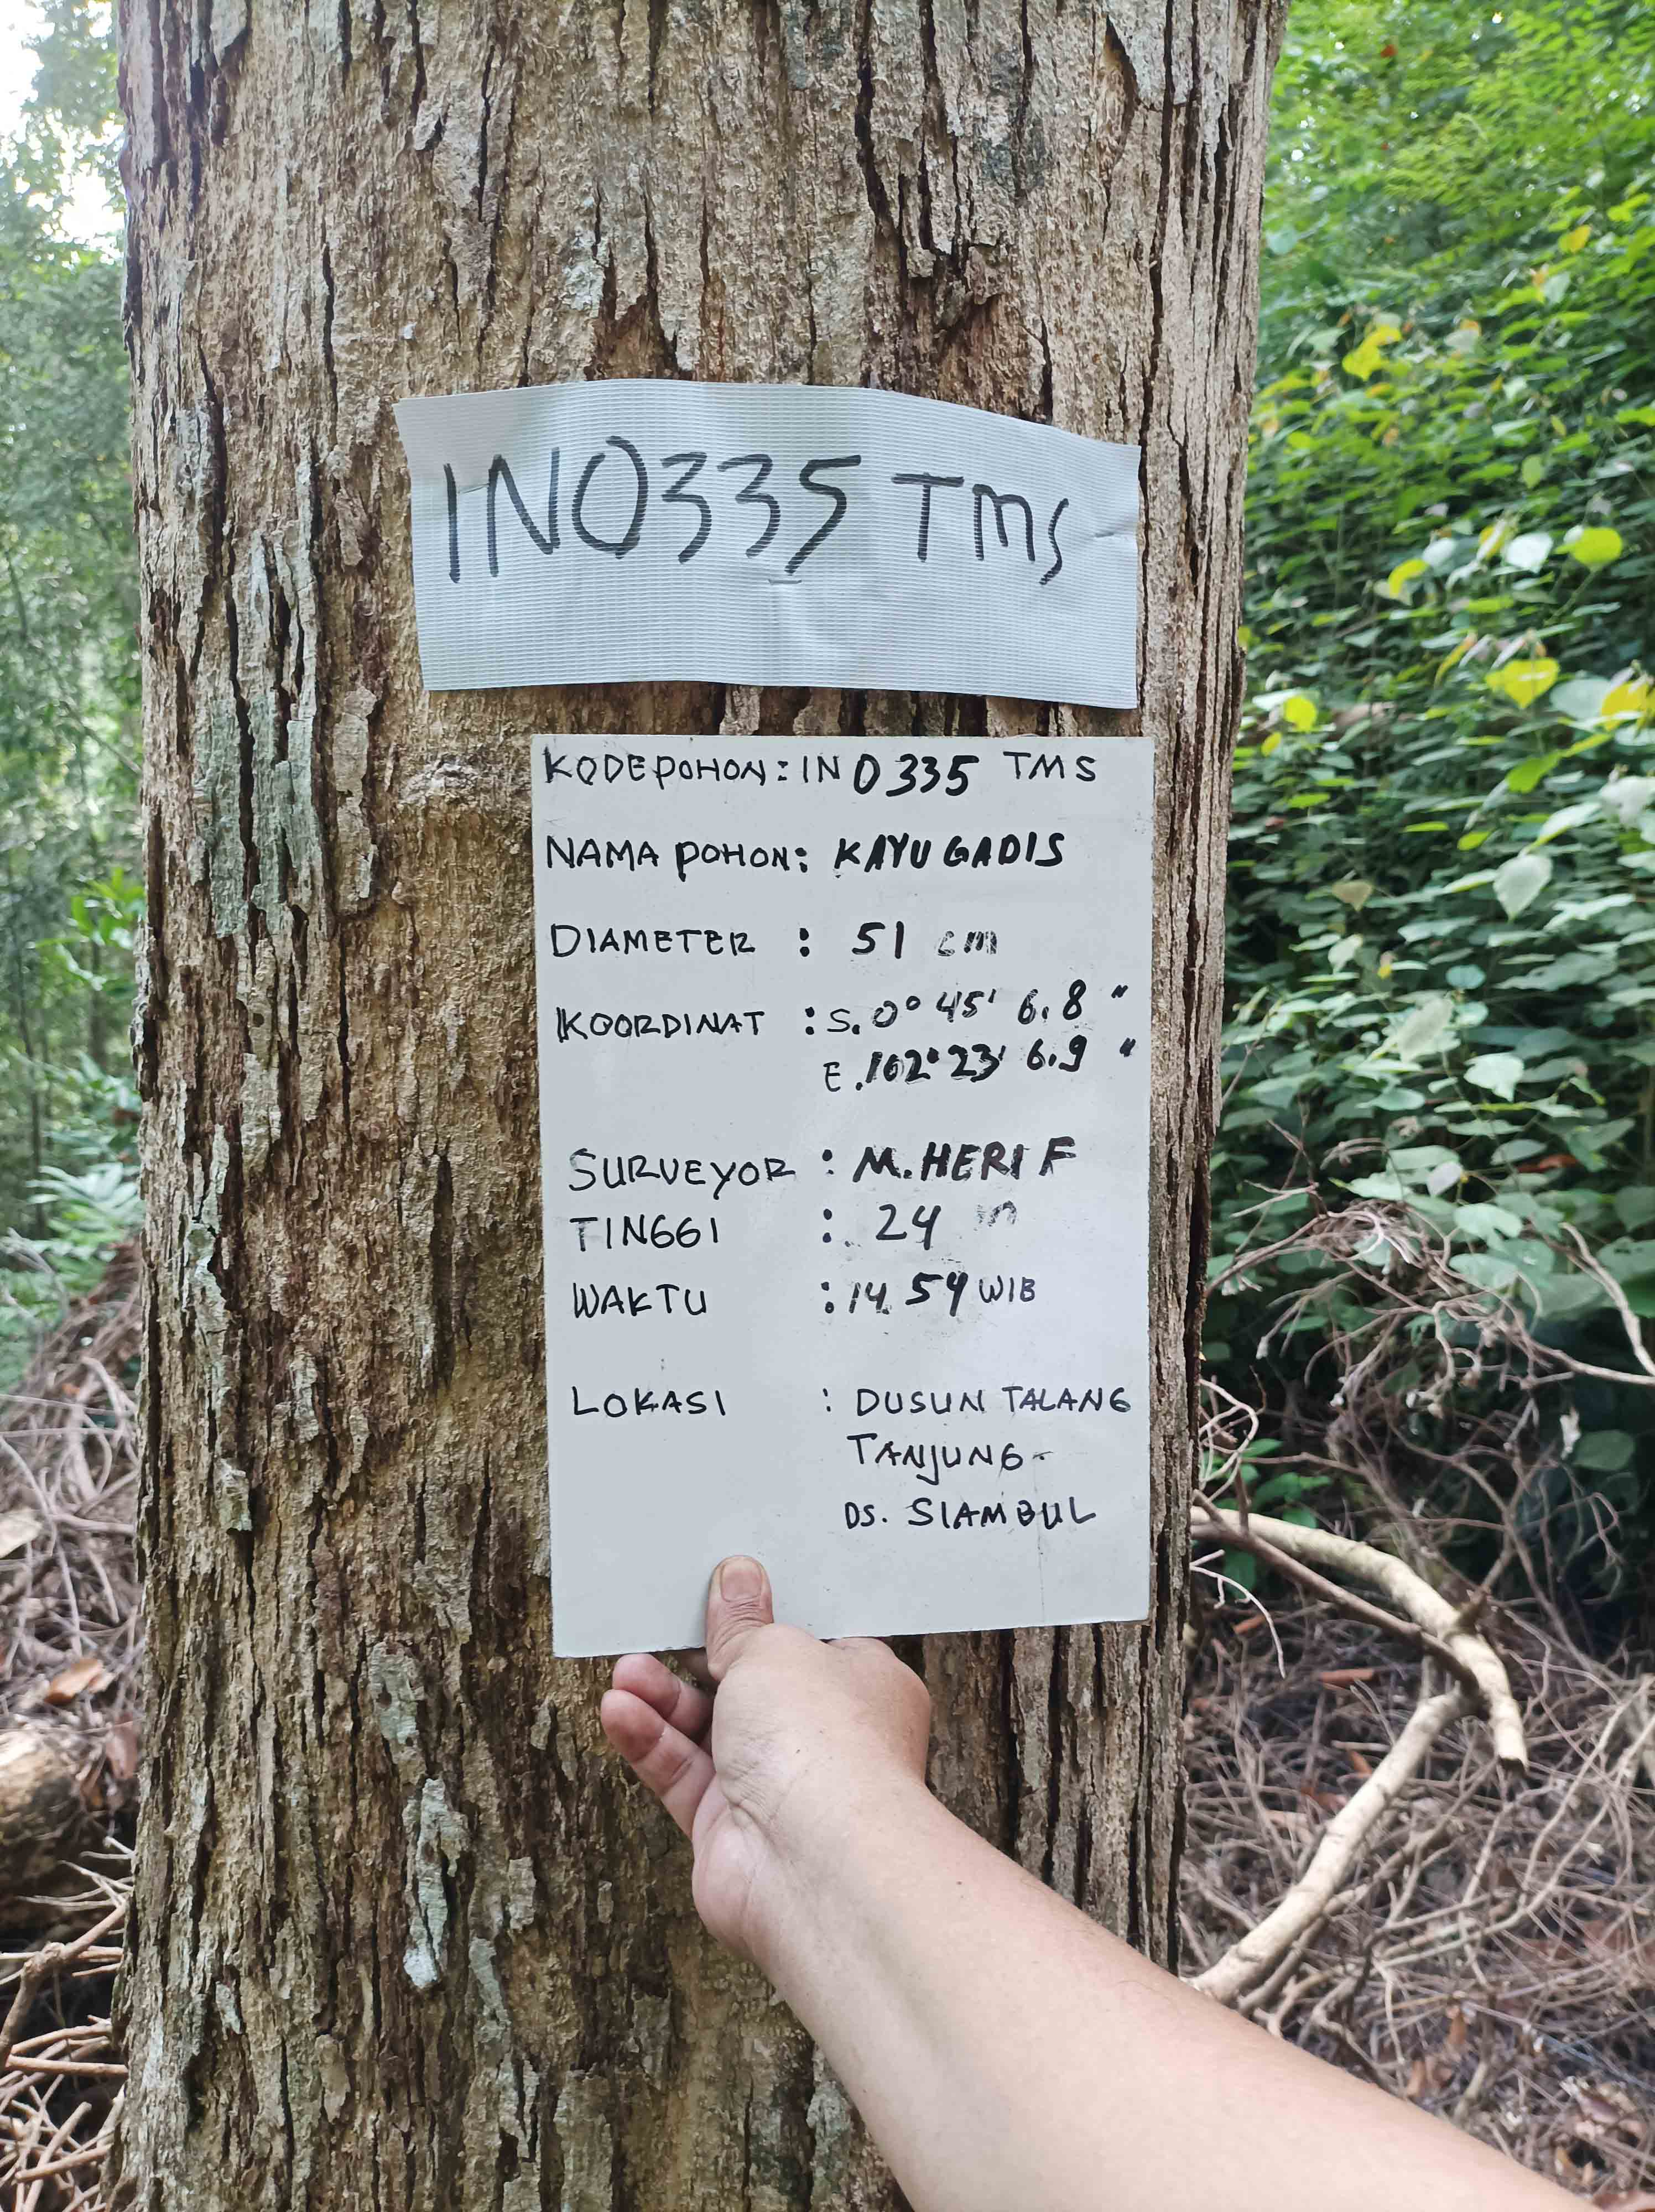 IN0335 TMS
KODE POHON : IN 0335 TMS
NAMA POHON : KAYU GADIS
DIAMETER : 51 cm
KOORDINAT : S. 0° 45' 6.8 "
E. 102° 23' 6.9 "
SURVEYOR : M. HERI F
TINGGI : 24 m
WAKTU : 14. 54 WIB
LOKASI : DUSUN TALANG
TANJUNG -
DS. SIAMBUL